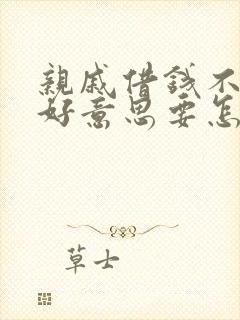 親戚借錢不
好意思要怎
草士